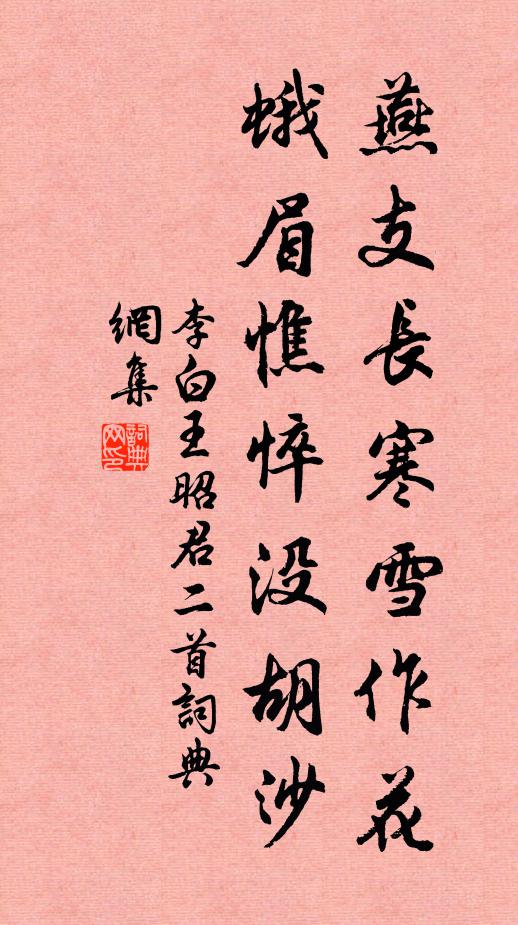 燕支長寒雪作花
蛾眉憔悴没胡沙
李白王昭君二首詞典
網集
詞典网印